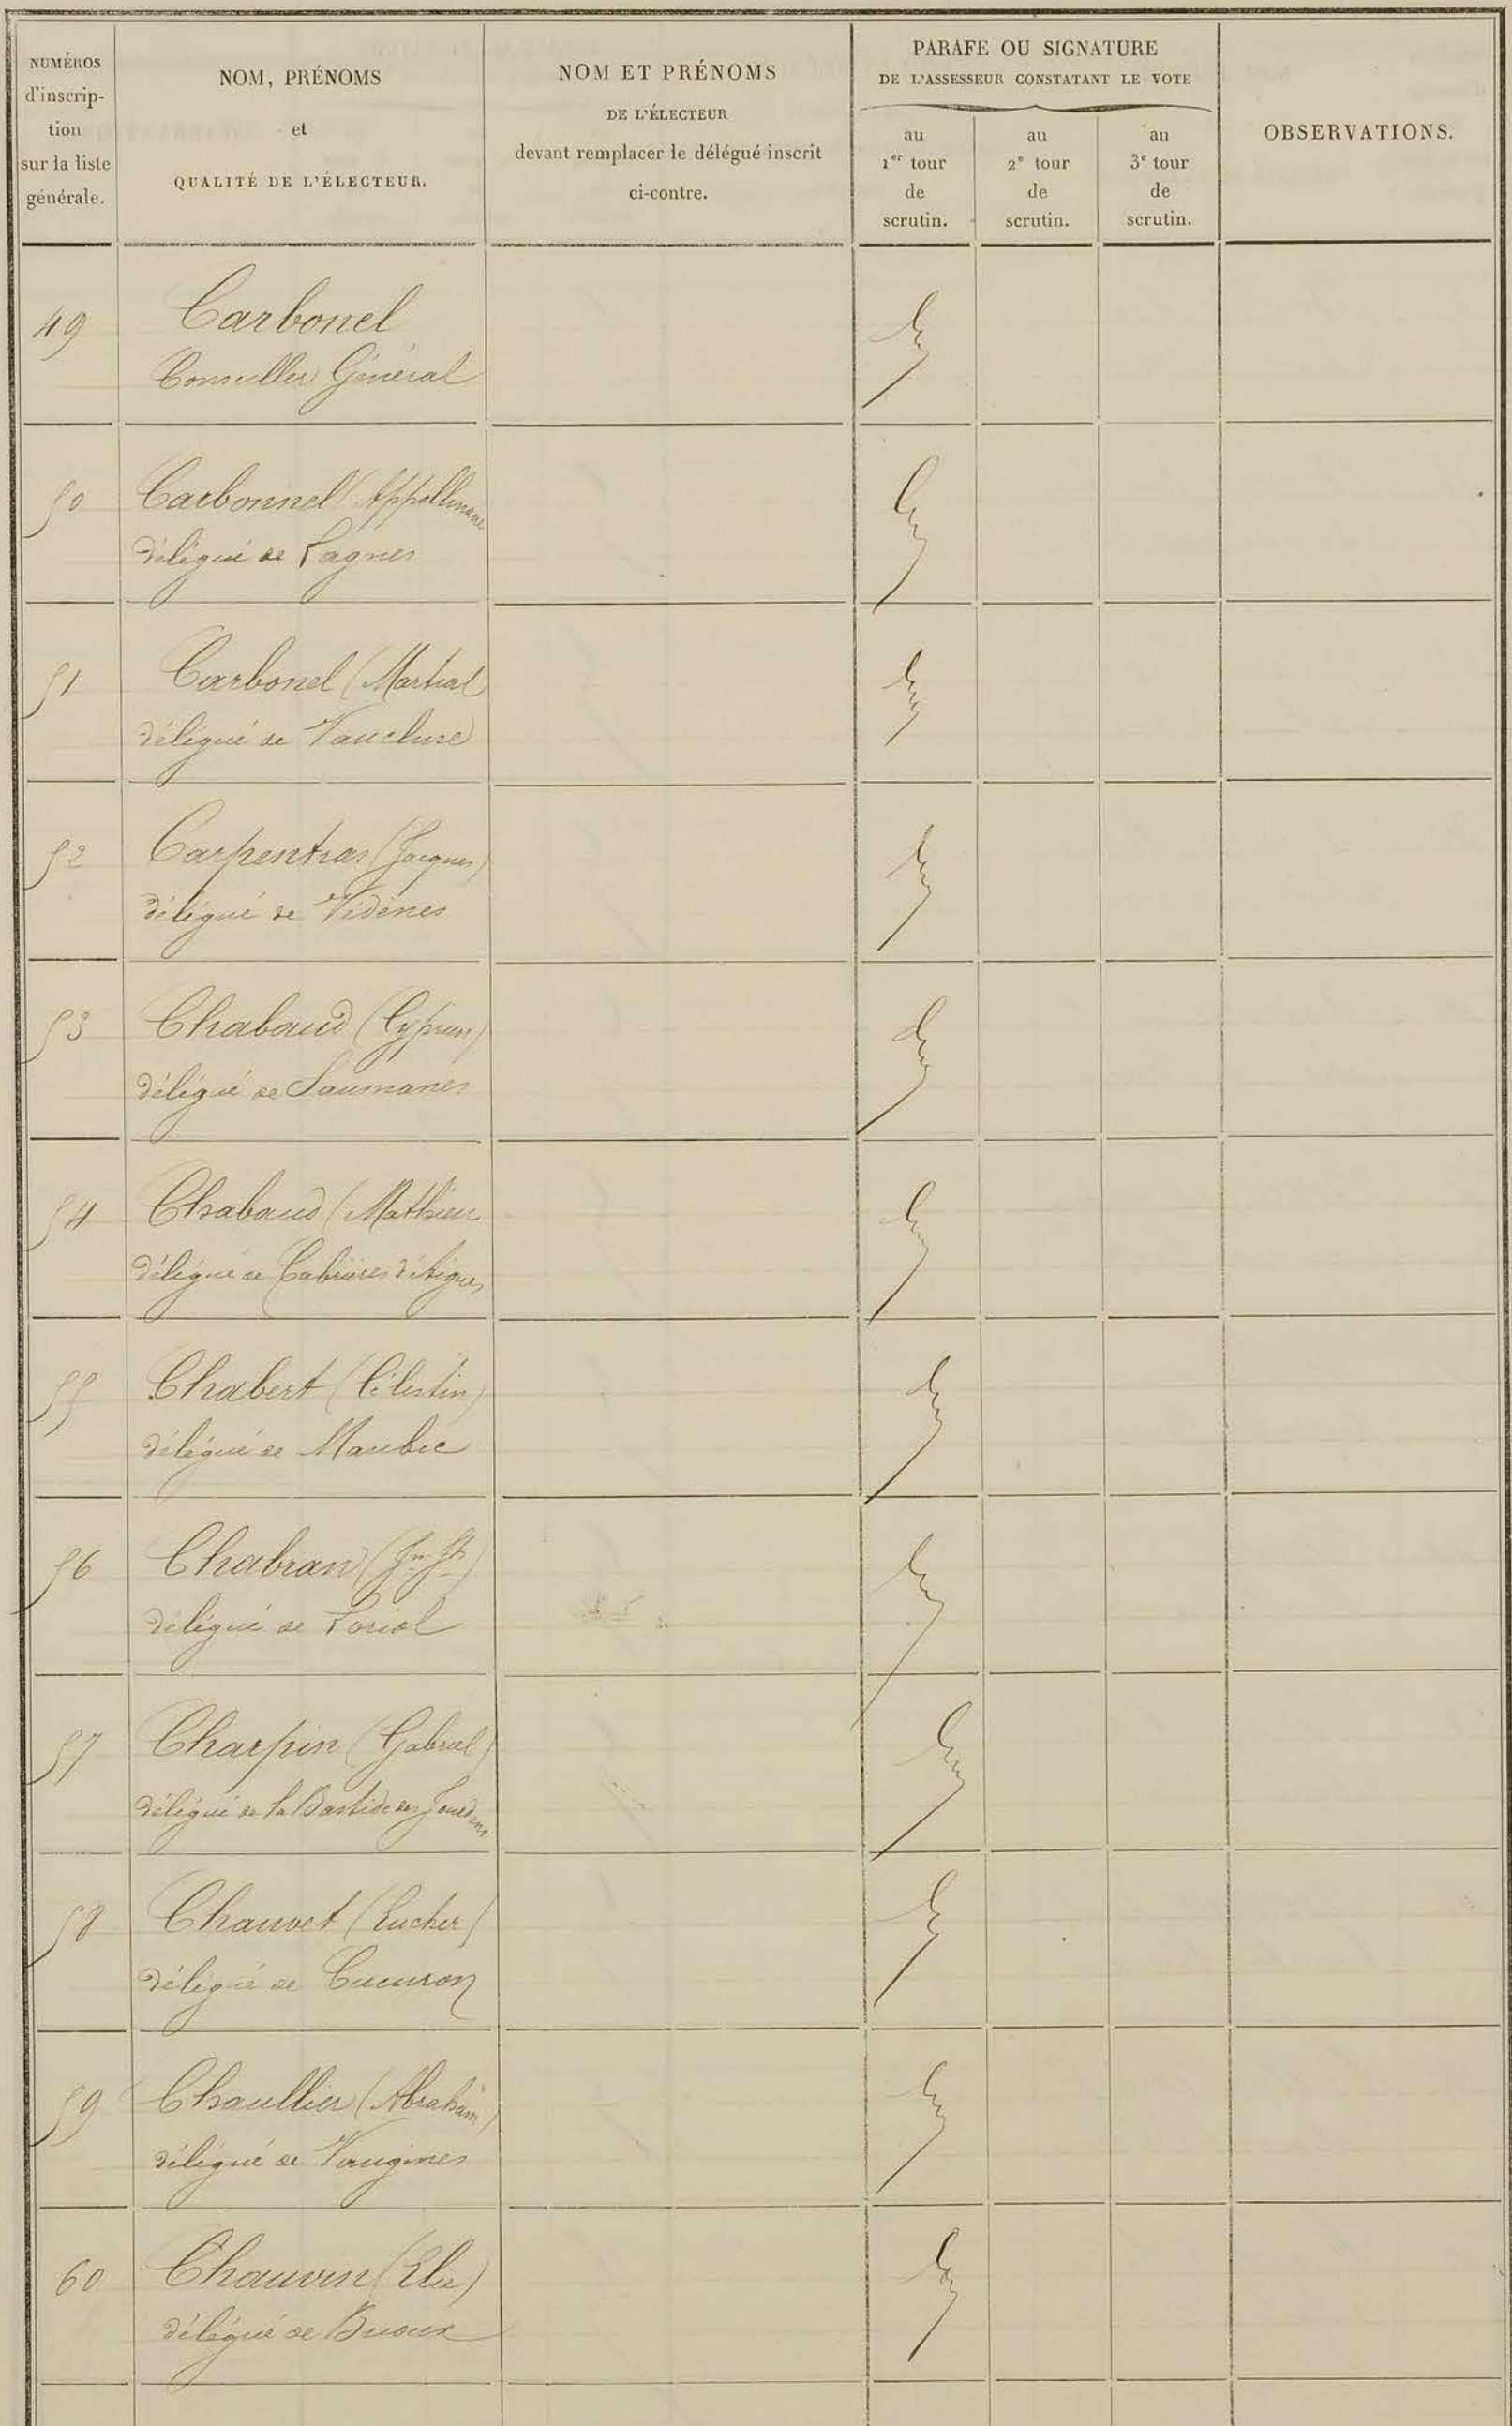 NUMÉROS
d'inscrip-
tion
sur la liste
générale.
NOM, PRÉNOMS
et
QUALITÉ DE L'ÉLECTEUR.
NOM ET PRÉNOMS
DE L'ÉLECTEUR
devant remplacer le délégué inscrit
ci-contre.
PARAFE OU SIGNATURE
DE L'ASSESSEUR CONSTATANT LE VOTE
au
1er tour
de
scrutin.
au
2e tour
de
scrutin.
au
3e tour
de
scrutin.
OBSERVATIONS.
49 Carbonel
Conseiller Général
50 Carbonnel (
délégué de Lagnes
51 Carbonel (Martial
délégué de Vaucluse
52 Carpentras (Jacques)
délégué de Védènes
53 Chabaud (Cyprien)
délégué de Saumanes
54 Chabaud (Mathieu
délégué de Cabrières d'Aigues
55 Chabert (Célestin)
délégué de Maubec
56 Chabran (Jn Jh)
délégué de Loriol
57 Charpin (Gabriel)
délégué de la Bastide des Jourdans
58 Chauvet (Eucher)
délégué de Cucuron
59 Chaullier (Abraham)
délégué de Vaugines
60 Chauvin (Elie)
délégué de Buoux